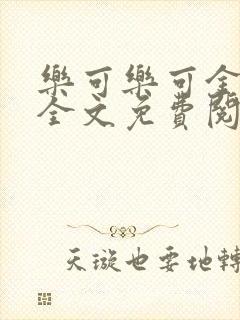 樂可樂可全
全文免費閱
天璇也要地轉